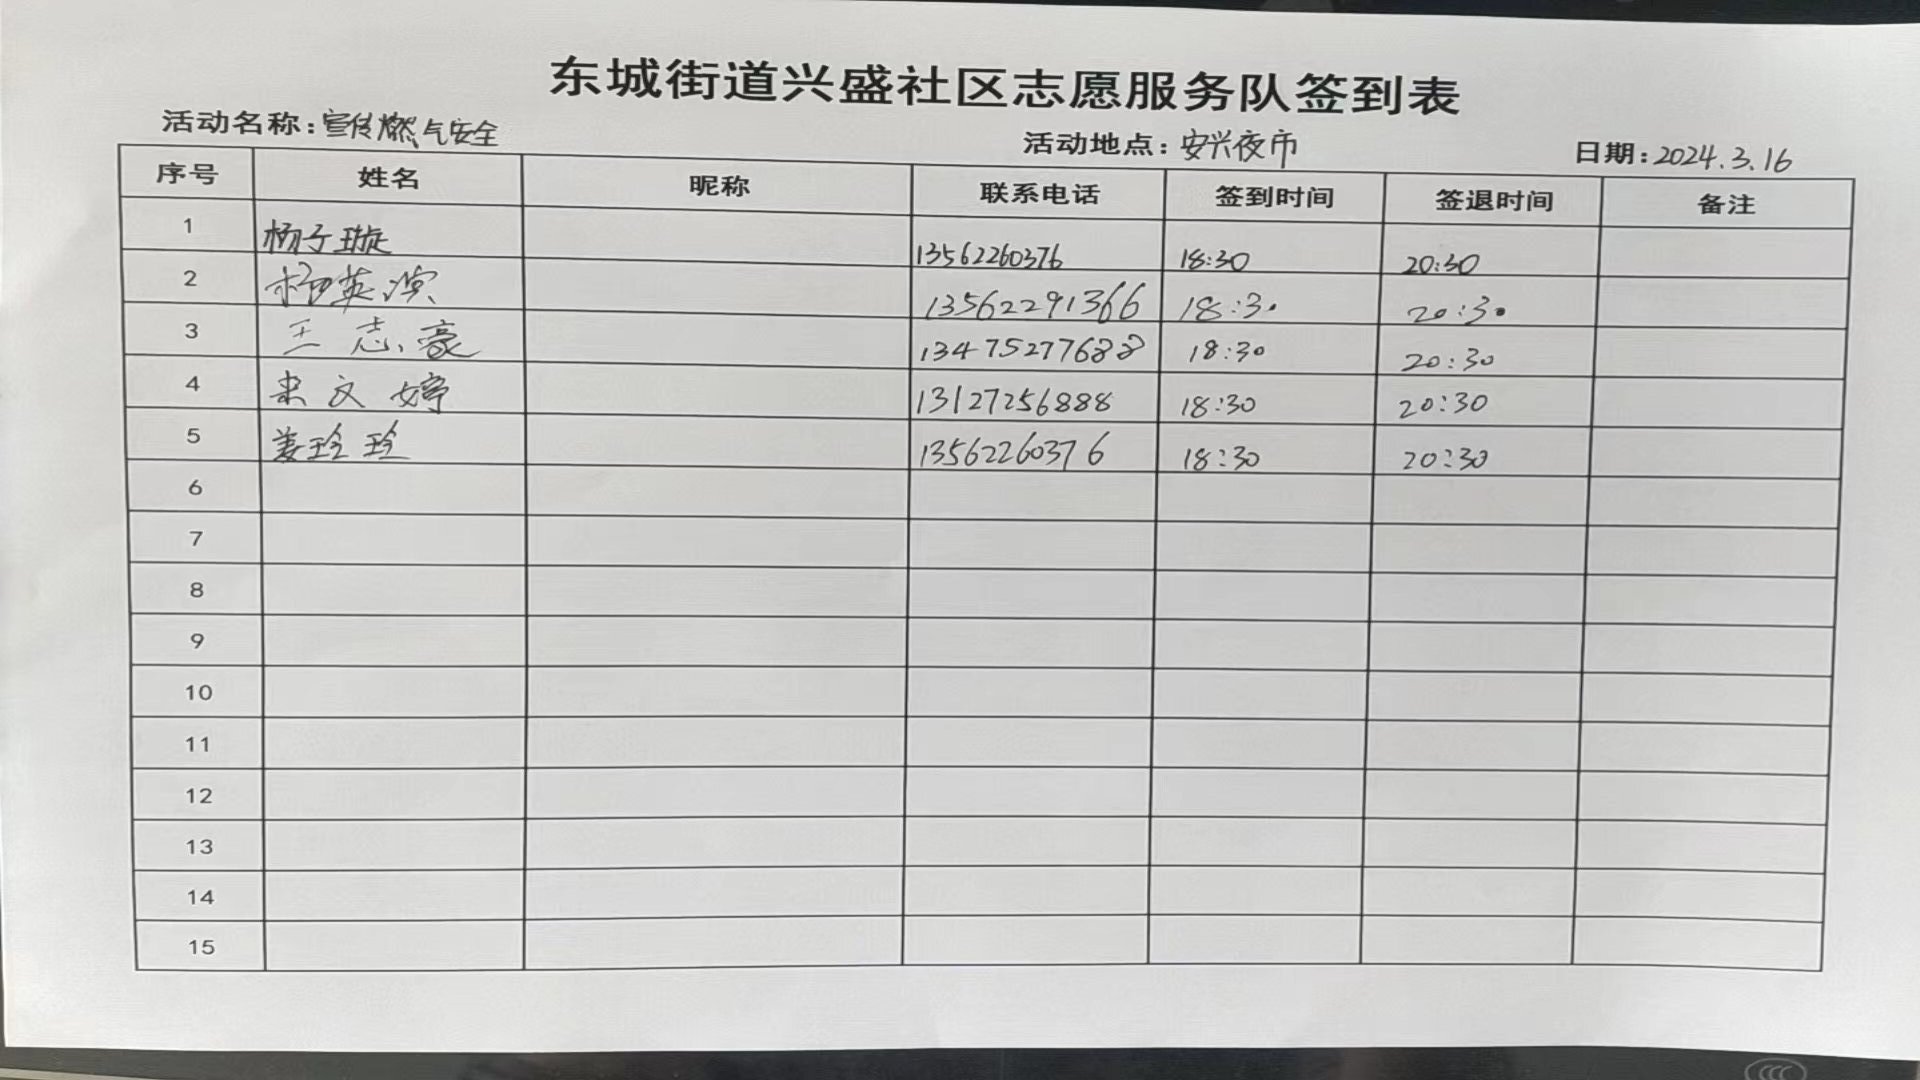 东城街道兴盛社区志愿服务队签到表
活动名称:宣传燃气安全 活动地点:安兴夜市 日期:2024.3.16
序号 姓名 昵称 联系电话 签到时间 签退时间 备注
1 杨子璇 13562260376 18:30 20:30
2 杨英滨 13562291366 18:30 20:30
3 王志豪 13475277688 18:30 20:30
4 文婷 13127256888 18:30 20:30
5 姜玲玲 13562260376 18:30 20:30
6
7
8
9
10
11
12
13
14
15